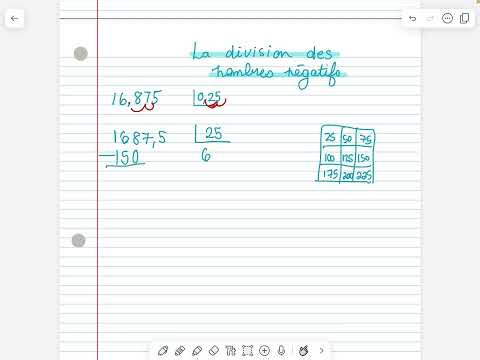 La division des
nombres négatifs
16,875 0,25
1687,5 25
-150 6
25 50 75
100 125 150
175 200 225